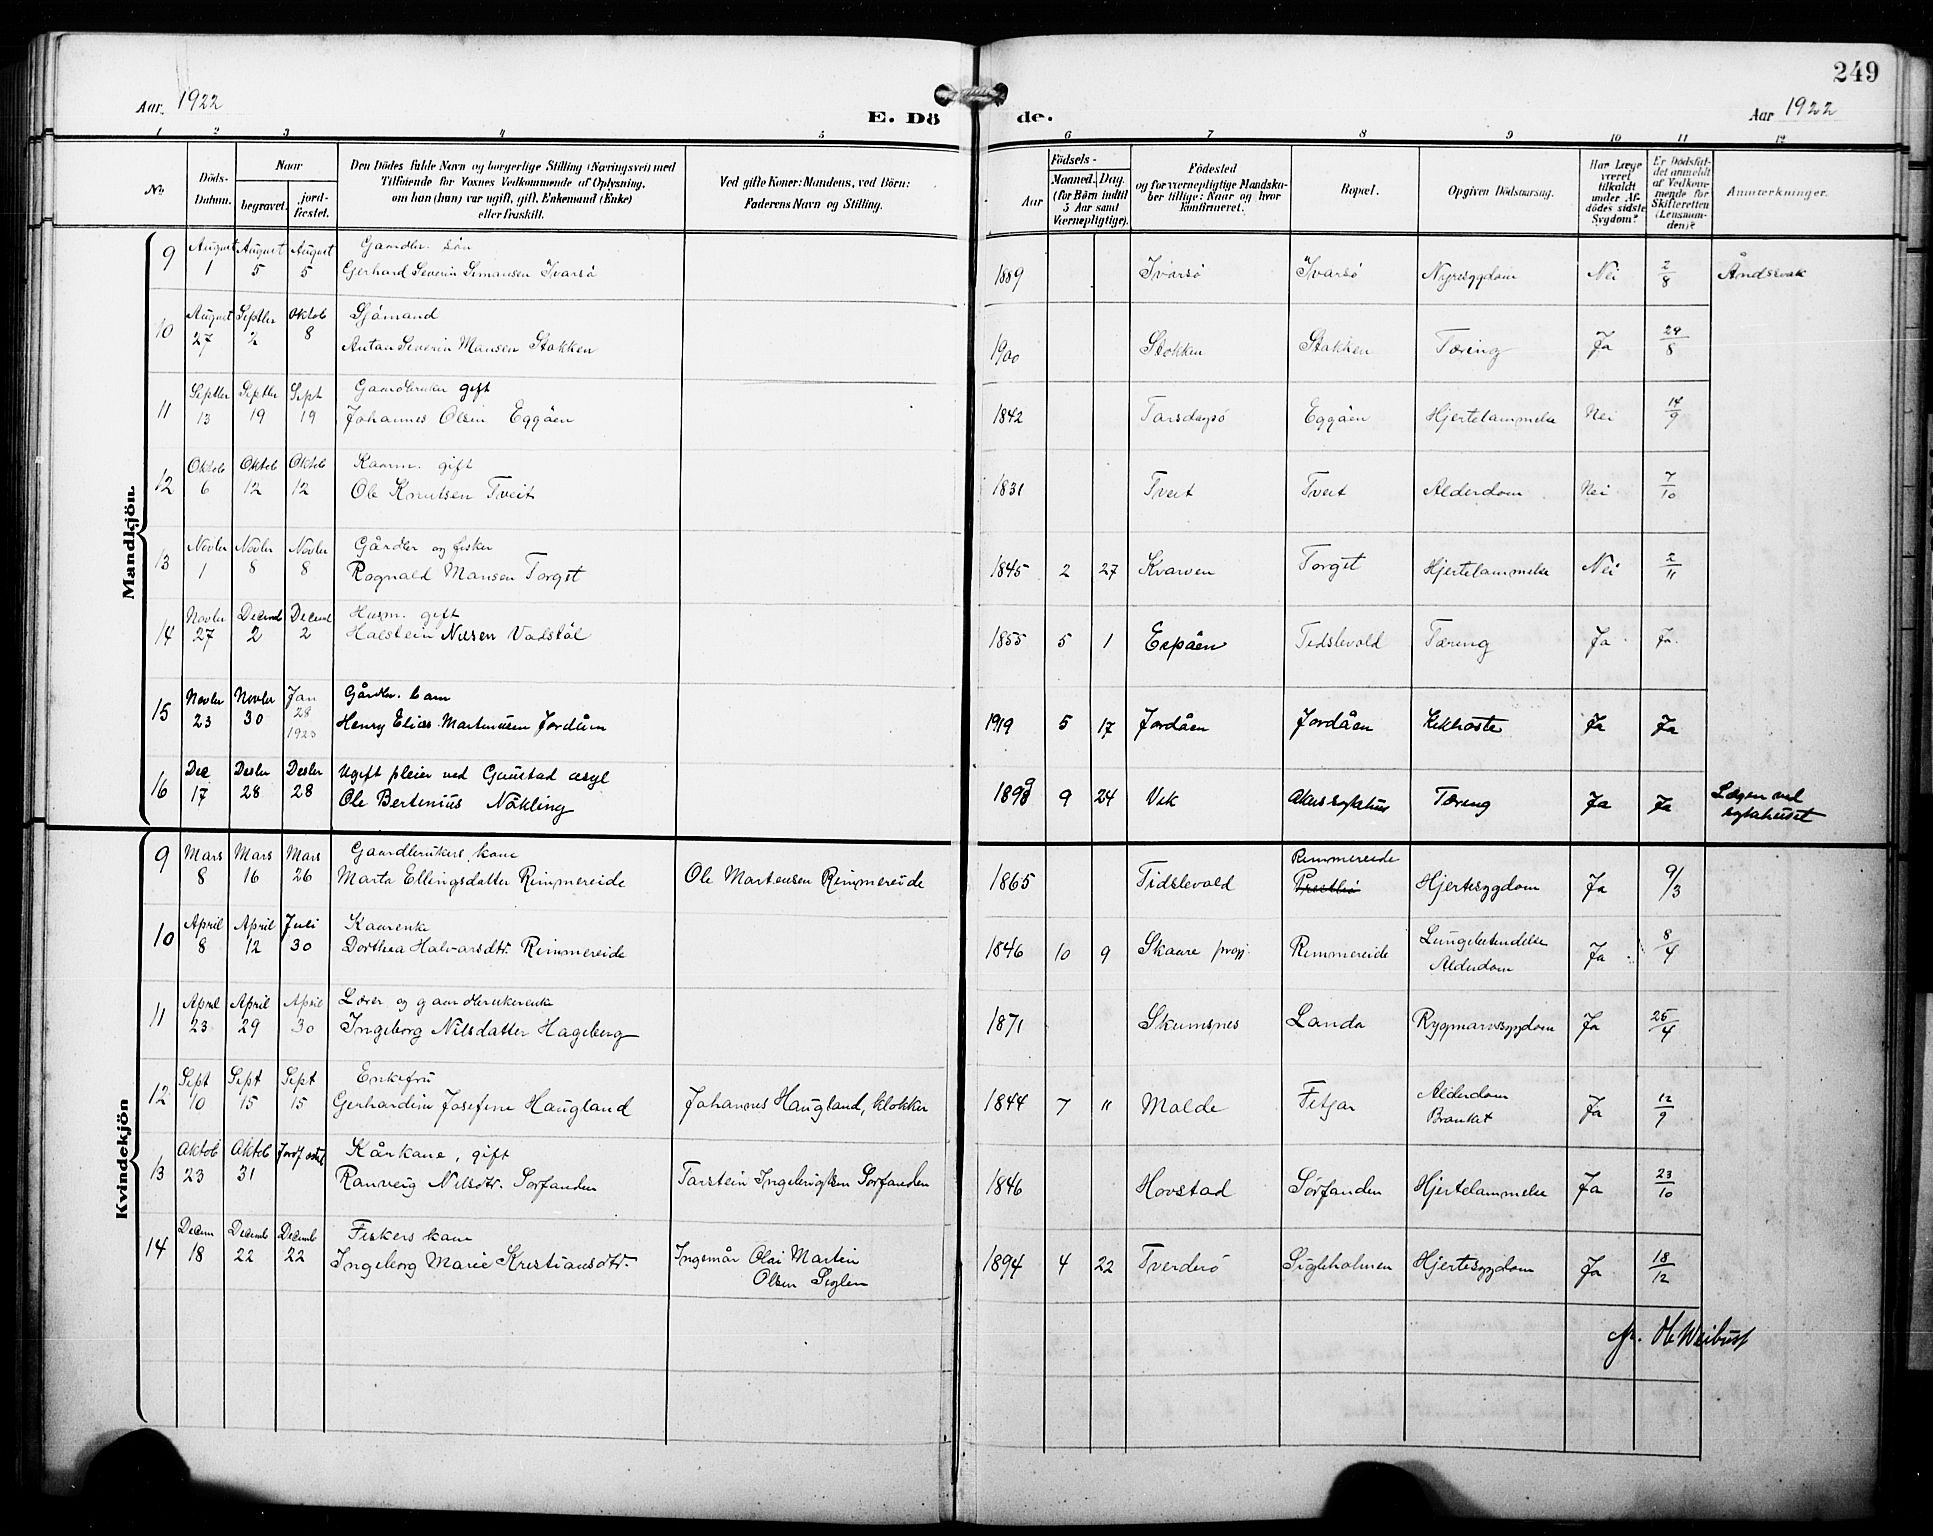 249
Aar 1922
E. Dö
de.
Aar 1922
1 2 3 4 5 6 7 8 9 10 11 12
No.
Döds-
Datum.
Naar
begravet.
jord-
fæstet.
Den Dödes fulde Navn og borgerlige Stilling (Næringsvei) med
Tilföiende för Voxnes Vedkommende af Oplysning,
om han (hun) var ugift, gift, Enkemand (Enke)
eller fraskilt.
Ved gifte Koner: Mandens, ved Börn:
Faderens Navn og Stilling.
Födsels-
Aar
Maaned. Dag.
(for Börn indtil
5 Aar samt
Værnepligtige).
Födested
og for værnepligtige Mandska-
ber tillige: Naar og hvor
konfirmeret.
Bopæl.
Opgiven Dödsaarsag.
Har Læge
været
tilkaldt
under Af-
dödes sidste
Sygdom?
Er Dödsfal-
det anmeldt
af Vedkom-
mende for
Skifteretten
(Lensman-
den)?
Anmærkninger.
Mandkjön.
9 August 1 August 5 August 5 Gaardbr. sön
Gerhard Severin Simonsen Ivarsö 1889 Ivarsö Ivarsö Nyresygdom Nei 2/8 Åndssvak
10 August 27 Septbr 2 Oktob 8 Sjömand
Antan Severin Mansen Stokken 1900 Stokken Stokken Tæring Ja 29/8
11 Septbr 13 Septbr 19 Sept 19 Gaardbruker gift
Johannes Olsen Eggöen 1842 Eggöen Hjertelammelse Nei 14/9
12 Oktob 6 Oktob 12 Oktob 12 Kaarm. gift
Ole Knutsen Tveit 1831 Tveit Tveit Alderdom Nei 7/10
13 Novbr 1 Novbr 8 Novbr 8 Gårdbr og fisker
Rognald Mansen Torget 1845 2 27 Kvarven Torget Hjertelammelse Nei 2/11
14 Novbr 27 Decemb 2 Decemb 2 Husm. gift
Halstein Nilsen Vadstöl 1855 5 1 Espåen Tidslevold Tæring Ja Ja
15 Novbr 23 Novbr 30 Jan 28 1923 Gårdbr. barn
Henry Elias Martinusen Jordåen 1919 5 17 Jordåen Jordåen Kikhoste Ja Ja
16 Dec 17 Desbr 28 Desbr 28 Ugift pleier ved Gaustad asyl
Ole Bertinius Nökling 1899 9 24 Vik Akers sykehus Tæring Ja Ja Lægen ved
sykehuset
Kvindekjön
9 Mars 8 Mars 16 Mars 26 Gaardbrukers kone
Marta Ellingsdatter Rimmereide Ole Martensen Rimmereide 1865 Tidslevold Rimmereide Hjertesygdom Ja 9/3
10 April 8 April 12 Juli 30 Kaarenke
Dorthea Halvarsdtr. Rimmereide 1846 10 9 Skaare Rimmereide Lungebetændelse
Alderdom Ja 8/4
11 April 23 April 29 April 30 Lærer og gaardbrukerenke
Ingeborg Nilsdatter Hageberg 1871 Skumsnes Landa Rygmarvssygdom Ja 25/4
12 Sept 10 Sept 15 Sept 15 Enkefru
Gerhardine Josefine Haugland Johannes Haugland, klokker 1844 7 " Molde Fitjar Alderdom
Bronkit Ja 12/9
13 Oktob 23 Oktob 31 Kårkone, gift
Ranveig Nilsdtr. Sörfonden Torstein Ingebrigtsen Sörfonden 1846 Hovstad Sörfonden Hjertelammelse Ja 23/10
14 Decem 18 Decemb 22 Decemb 22 Fiskers kone
Ingeborg Marie Kristiansdtr. Ingemår Olai Martin
Olsen Siglen 1894 4 22 Tverderö Sigleholmen Hjertesygdom Ja 18/12